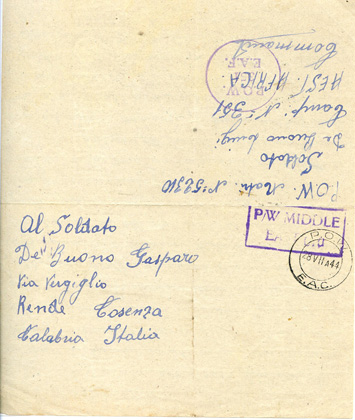 P.O.W. Matr. N: 52310
Soldato
De Buono Luigi
Camp. N: 351
AFRICA
Command
P.O.W
E.A.F.
P/W MIDDLE
P.O.W
28 VII 44
E.A.C.
Al Soldato
De Buono Gasparo
Via Virgiglio
Rende Cosenza
Calabria Italia